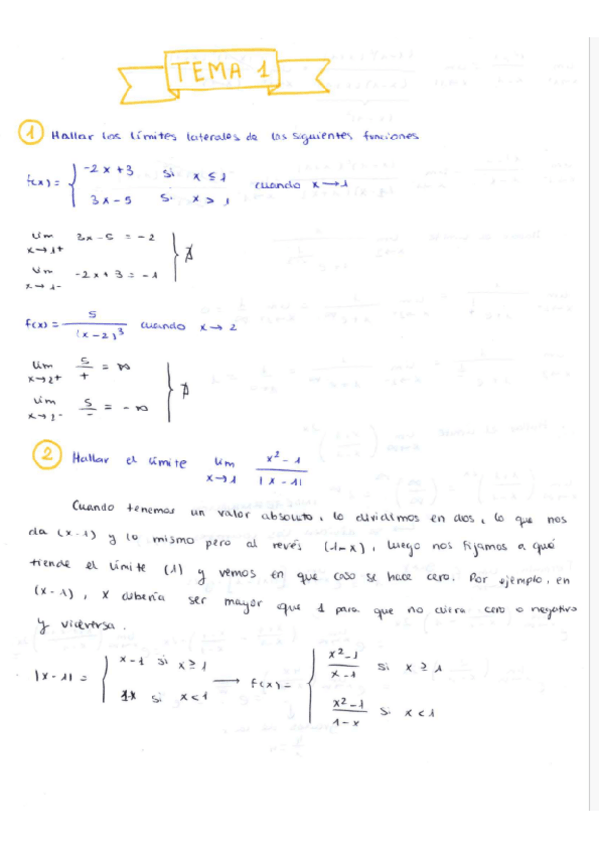 TEMA 1
1 Hallar los límites laterales de las siguientes funciones
f(x) = { -2x+3 si x ≤ 1
3x-5 si x > 1 cuando x → 1
lim x→1+ 3x-5 = -2
lim x→1- -2x+3 = -1 } ∄
f(x) = 5/(x-2)³ cuando x → 2
lim x→2+ 5/+ = ∞
lim x→2- 5/- = -∞ } ∄
2 Hallar el límite lim x→1 x²-1/|x-1|
Cuando tenemos un valor absoluto, lo dividimos en dos, lo que nos
da (x-1) y lo mismo pero al revés (1-x), luego nos fijamos a qué
tiende el límite (1) y vemos en que caso se hace cero. Por ejemplo, en
(x-1), x debería ser mayor que 1 para que no diera cero o negativo
y viceversa.
|x-1| = { x-1 si x ≥ 1
1-x si x < 1 → f(x) = { x²-1/x-1 si x ≥ 1
x²-1/1-x si x < 1